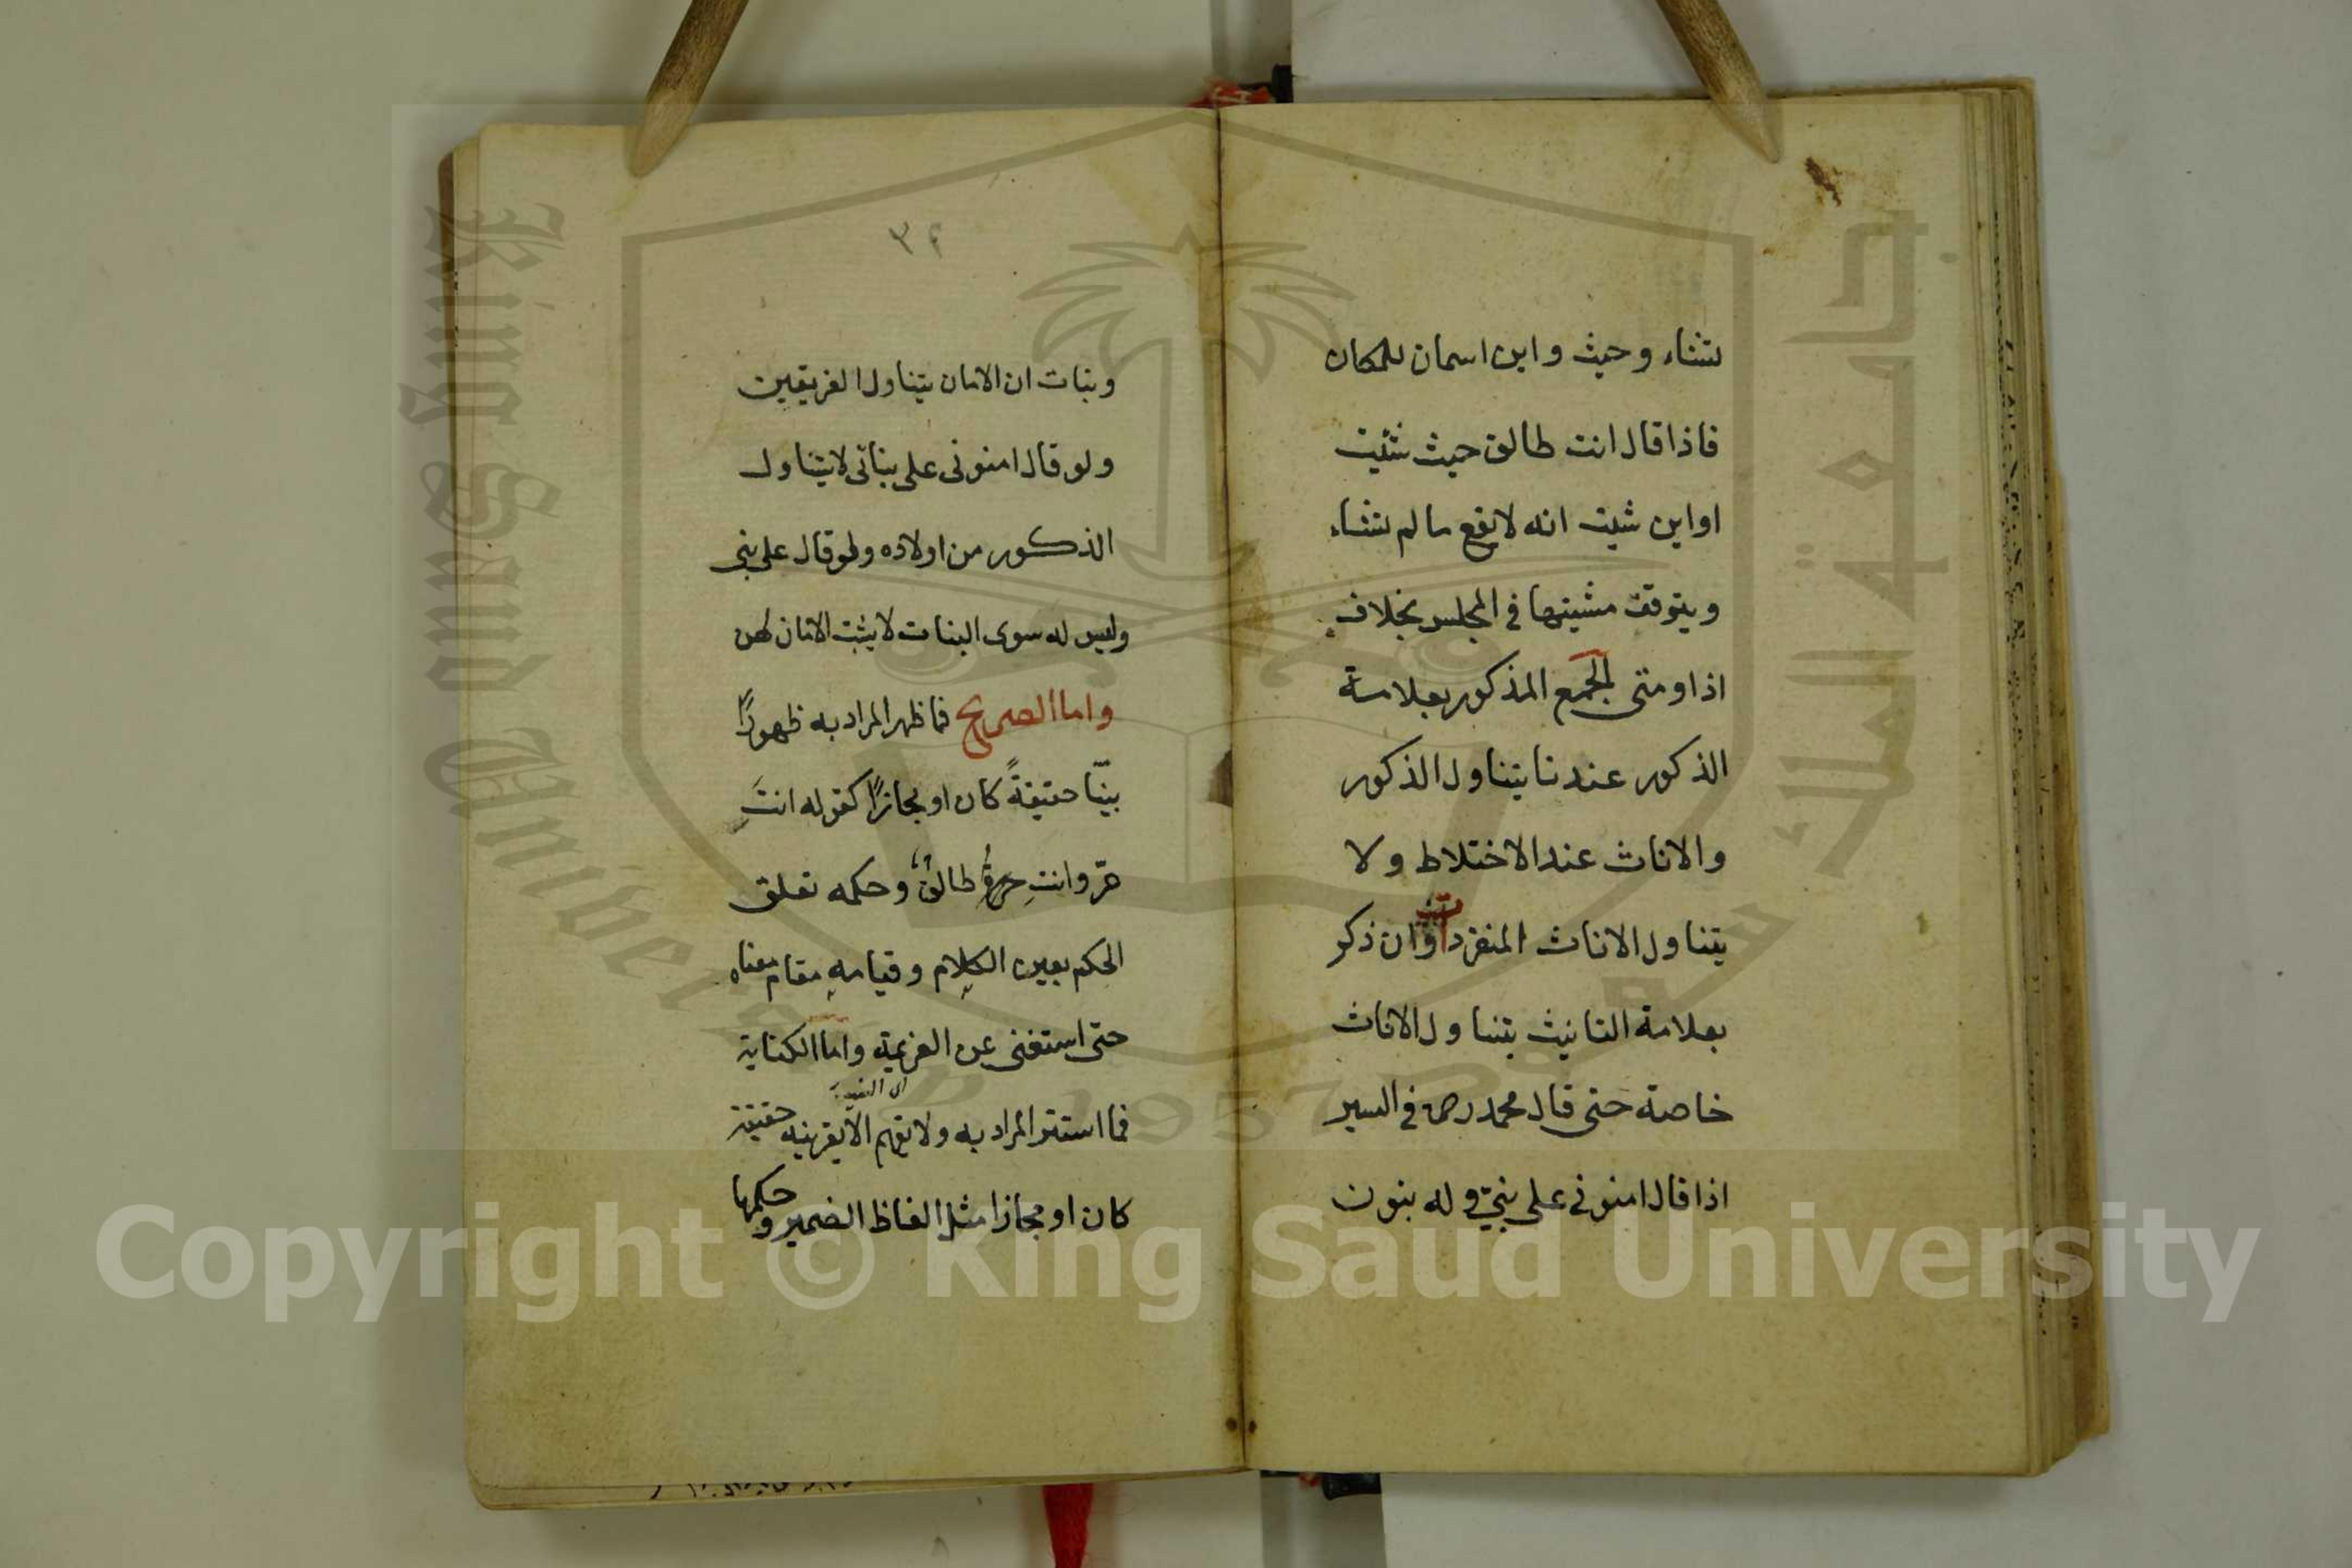 لتشاء وحيث واين اسمان للمكان
فاذا قال انت طالق حيث شئت
اواين شيت انه لايقع مالم تشاء
ويتوقف مشيتها في المجلس بخلاف
اذا ومتى الجمع المذكور بعلامة
الذكور عندنا يتناول الذكور
والاناث عند الاختلاط ولا
يتناول الاناث المنفردات وان ذكر
بعلامة التانيث يتناول الاناث
خاصة حتى قال محمد رح في السير
اذا قال امنوني على بنيّ وله بنون
٣٤
وبنات ان الامان يتناول الفريقين
ولو قال امنونى على بناتى لايتناول
الذكور من اولاده ولو قال على بنى
وليس له سوى البنات لايثبت الامان لهن
واما الصريح فما ظهر المراد به ظهورًا
بينّا حقيقةً كان او مجازًا كقوله انتَ
حرّ وانتِ حرةٌ طالقٌ وحكمه تعلق
الحكم بعين الكلام وقيامهِ مقام معناه
حتى استغنى عن العزيمة واما الكناية
فما استتر المراد به ولا يفهم الّا بقرينة حقيقة
كان او مجازا مثل الفاظ الضمير وحكمها
King Saud University
1957
جامعة الملك سعود
Copyright © King Saud University